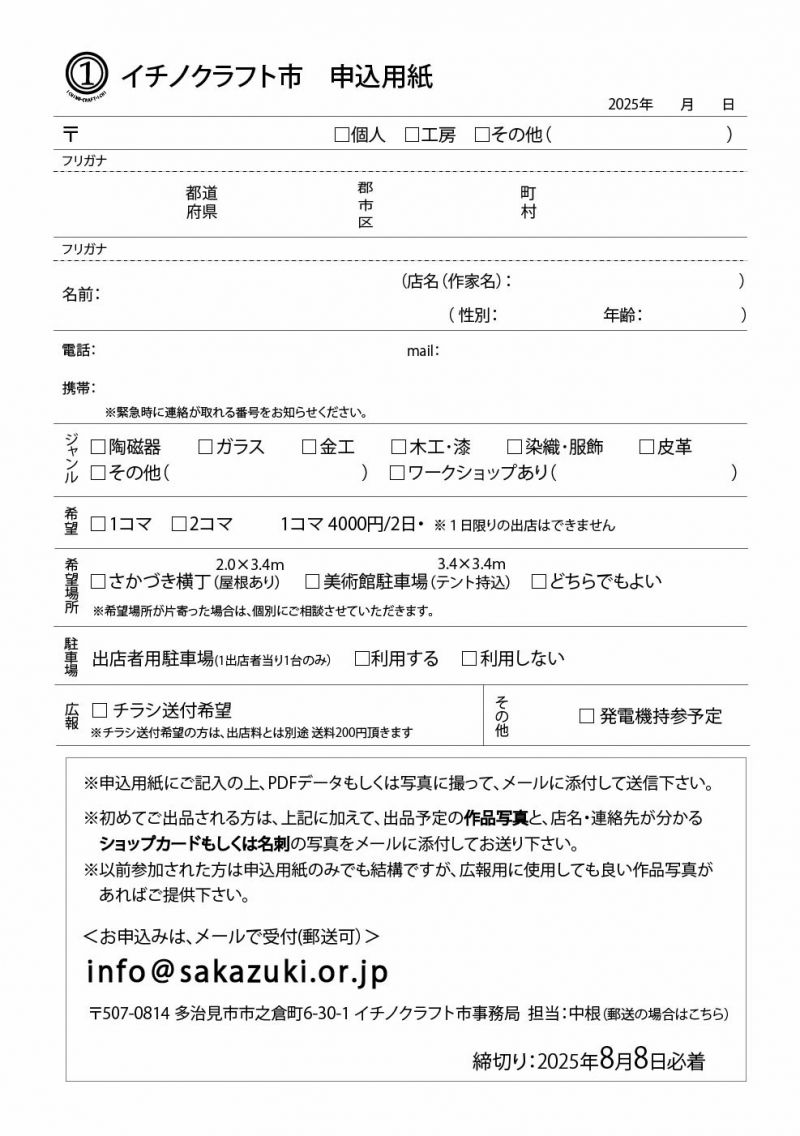 1 イチノクラフト市 申込用紙
ICHINO-CRAFT-ICHI
2025年 月 日
〒 □個人 □工房 □その他( )
フリガナ
都道府県 郡市区 町村
フリガナ
(店名(作家名): )
名前:
( 性別: 年齢: )
電話: mail:
携帯:
※緊急時に連絡が取れる番号をお知らせください。
ジャンル □陶磁器 □ガラス □金工 □木工・漆 □染織・服飾 □皮革
□その他( ) □ワークショップあり( )
希望 □1コマ □2コマ 1コマ 4000円/2日・ ※１日限りの出店はできません
2.0×3.4m 3.4×3.4m
希望場所 □さかづき横丁(屋根あり) □美術館駐車場(テント持込) □どちらでもよい
※希望場所が片寄った場合は、個別にご相談させていただきます。
駐車場 出店者用駐車場(1出店者当り1台のみ) □利用する □利用しない
広報 □ チラシ送付希望 その他 □ 発電機持参予定
※チラシ送付希望の方は、出店料とは別途 送料200円頂きます
※申込用紙にご記入の上、PDFデータもしくは写真に撮って、メールに添付して送信下さい。
※初めてご出品される方は、上記に加えて、出品予定の作品写真と、店名・連絡先が分かる
ショップカードもしくは名刺の写真をメールに添付してお送り下さい。
※以前参加された方は申込用紙のみでも結構ですが、広報用に使用しても良い作品写真が
あればご提供下さい。
＜お申込みは、メールで受付(郵送可)＞
info@sakazuki.or.jp
〒507-0814 多治見市市之倉町6-30-1 イチノクラフト市事務局 担当:中根(郵送の場合はこちら)
締切り:2025年8月8日必着